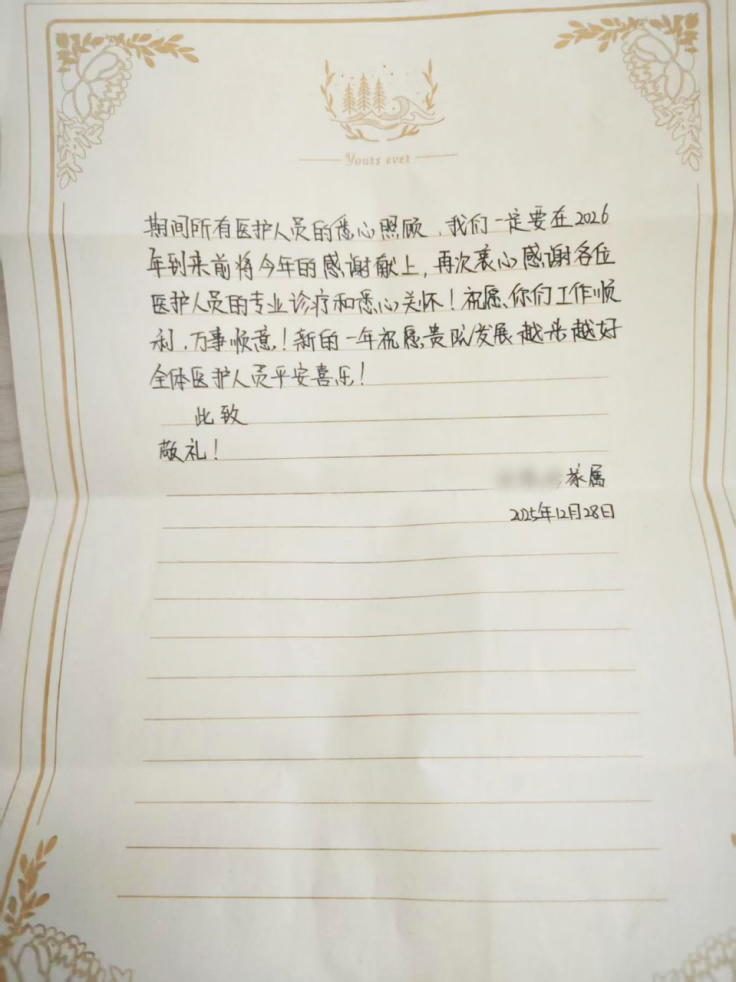 Yours ever
期间所有医护人员的悉心照顾，我们一定要在2026
年到来前将今年的感谢献上，再次衷心感谢各位
医护人员的专业诊疗和悉心关怀！祝愿你们工作顺
利，万事顺意！新的一年祝愿贵院发展越来越好
全体医护人员平安喜乐！
此致
敬礼！
家属
2025年12月28日